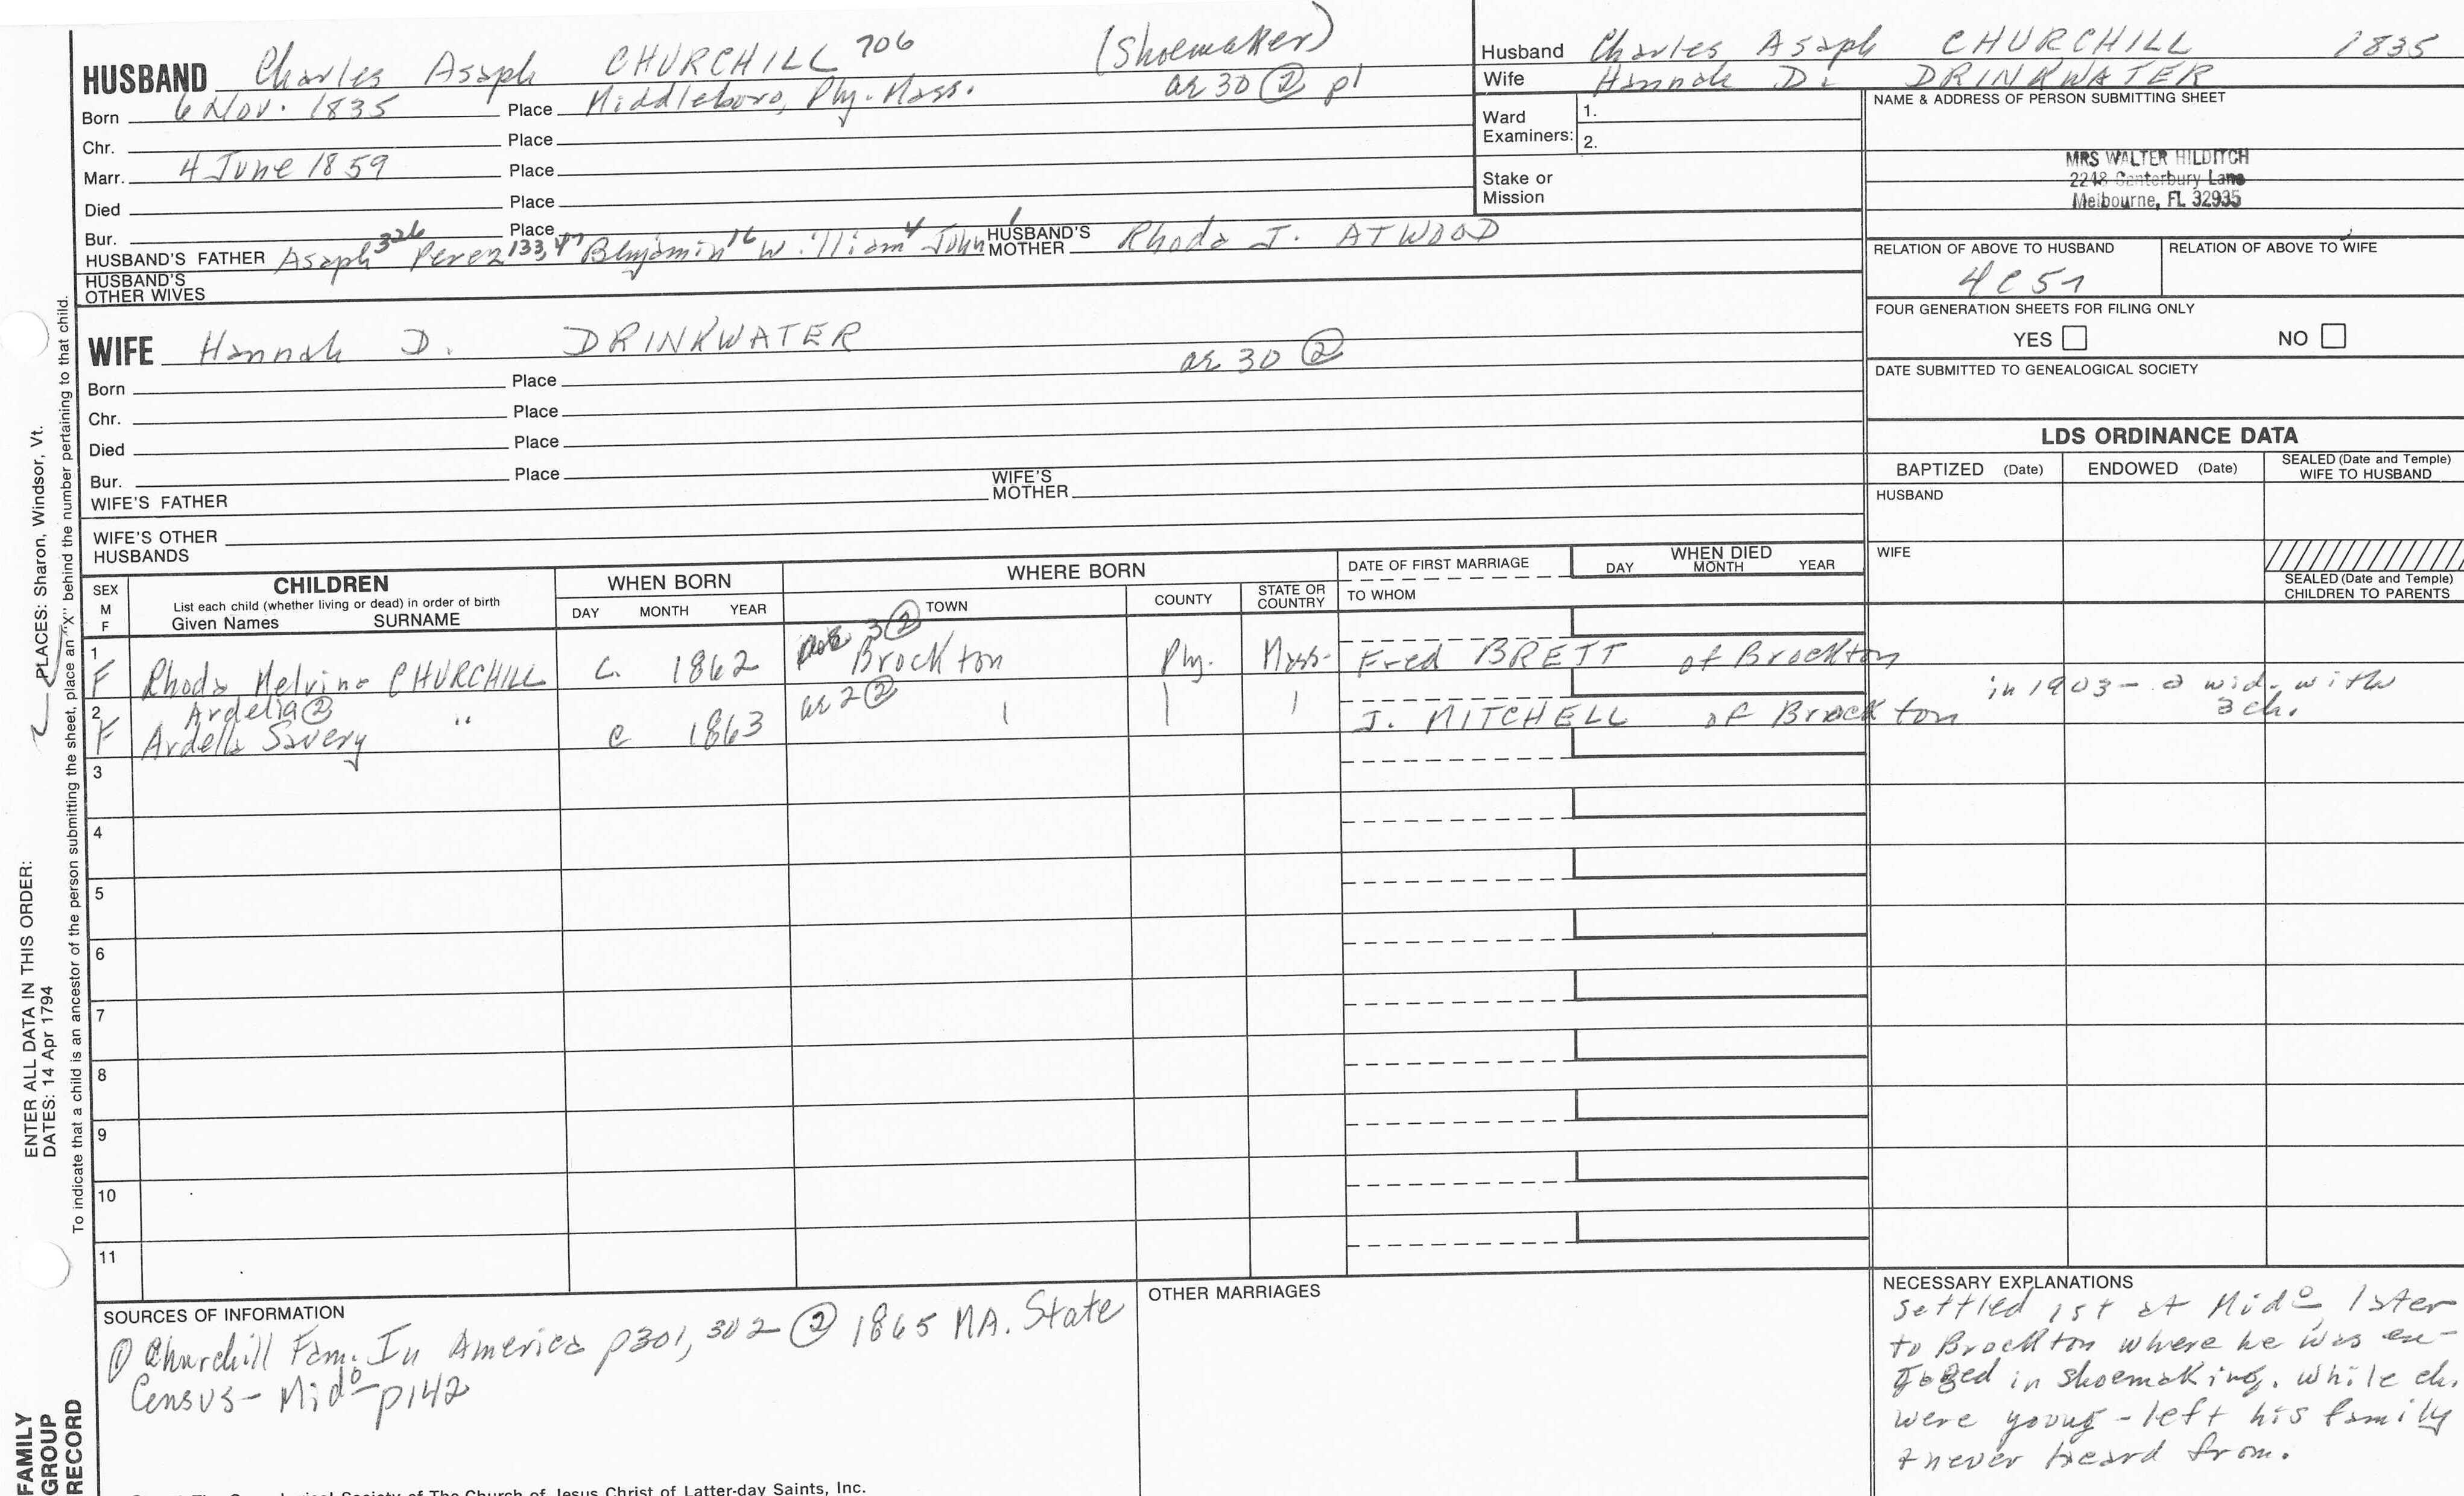 HUSBAND Charles Asaph CHURCHILL 706 (Shoemaker)
Born 6 Nov. 1835 Place Middleboro, Ply. Mass. ae 30 ② pl
Chr. Place
Marr. 4 June 1859 Place
Died Place
Bur. Place
HUSBAND'S FATHER Asaph 326 Perez 133, 47 Benjamin 16 William 4 John 1 HUSBAND'S MOTHER Rhoda J. ATWOOD
HUSBAND'S OTHER WIVES
WIFE Hannah D. DRINKWATER ae 30 ②
Born Place
Chr. Place
Died Place
Bur. Place
WIFE'S FATHER WIFE'S MOTHER
WIFE'S OTHER HUSBANDS
Husband Charles Asaph CHURCHILL 1835
Wife Hannah D. DRINKWATER
Ward Examiners: 1.
2.
Stake or Mission
NAME & ADDRESS OF PERSON SUBMITTING SHEET
MRS WALTER HILDITCH
2248 Canterbury Lane
Melbourne, FL 32935
RELATION OF ABOVE TO HUSBAND RELATION OF ABOVE TO WIFE
4C5
FOUR GENERATION SHEETS FOR FILING ONLY
YES NO
DATE SUBMITTED TO GENEALOGICAL SOCIETY
LDS ORDINANCE DATA
BAPTIZED (Date) ENDOWED (Date) SEALED (Date and Temple) WIFE TO HUSBAND
HUSBAND
WIFE
SEALED (Date and Temple) CHILDREN TO PARENTS
SEX M F CHILDREN WHEN BORN WHERE BORN DATE OF FIRST MARRIAGE WHEN DIED
List each child (whether living or dead) in order of birth
Given Names SURNAME DAY MONTH YEAR TOWN COUNTY STATE OR COUNTRY TO WHOM DAY MONTH YEAR
3 ②
1 F Rhoda Melvina CHURCHILL c. 1862 Brockton Ply. Mass. Fred BRETT of Brockton
in 1903 - a wid. with 3 ch.
Ardelia ② ae 2 ②
2 F Ardella Savery " c 1863 J. MITCHELL of Brockton
3
4
5
6
7
8
9
10
11
SOURCES OF INFORMATION
① Churchill Fam. In America p301, 302 ② 1865 MA. State
Census - Mido - p142
OTHER MARRIAGES
NECESSARY EXPLANATIONS
Settled 1st at Mido later
to Brockton where he was en-
gaged in shoemaking. While ch.
were young - left his family
& never heard from.
ENTER ALL DATA IN THIS ORDER:
DATES: 14 Apr 1794
PLACES: Sharon, Windsor, Vt.
To indicate that a child is an ancestor of the person submitting the sheet, place an "X" behind the number pertaining to that child.
FAMILY
GROUP
RECORD
Genealogical Society of The Church of Jesus Christ of Latter-day Saints, Inc.